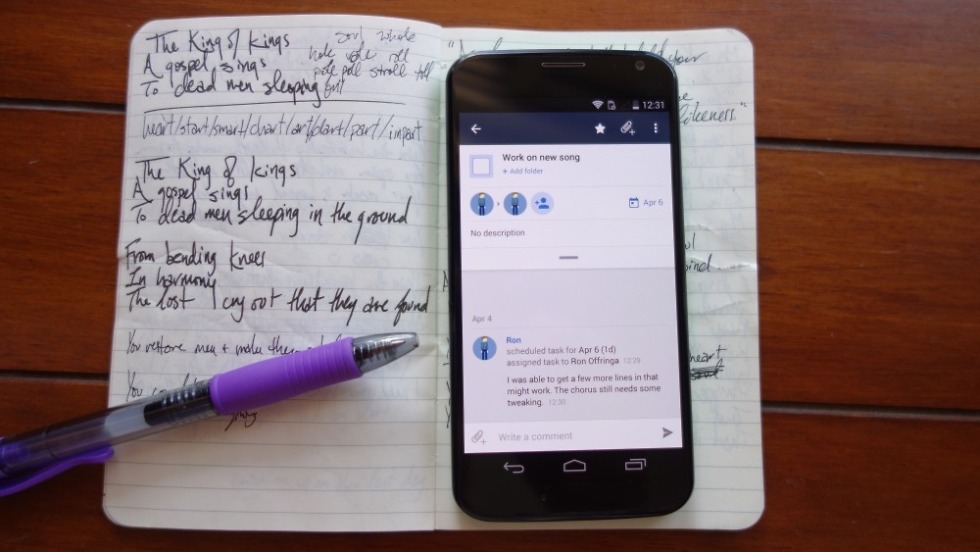 The King of Kings
A gospel sings
To dead men sleeping
soul whole
hole role roll
pole poll stroll toll
heart/start/smart/chart/art/dart/part/impart
The King of Kings
A gospel sings
To dead men sleeping in the ground
From bending knees
In harmony
The lost cry out that they are found
You restore men + make
You
likeness"
heart
12:31
Work on new song
+ Add folder
Apr 6
No description
Apr 4
Ron
scheduled task for Apr 6 (1d)
assigned task to Ron Offringa 12:29
I was able to get a few more lines in that
might work. The chorus still needs some
tweaking. 12:30
Write a comment